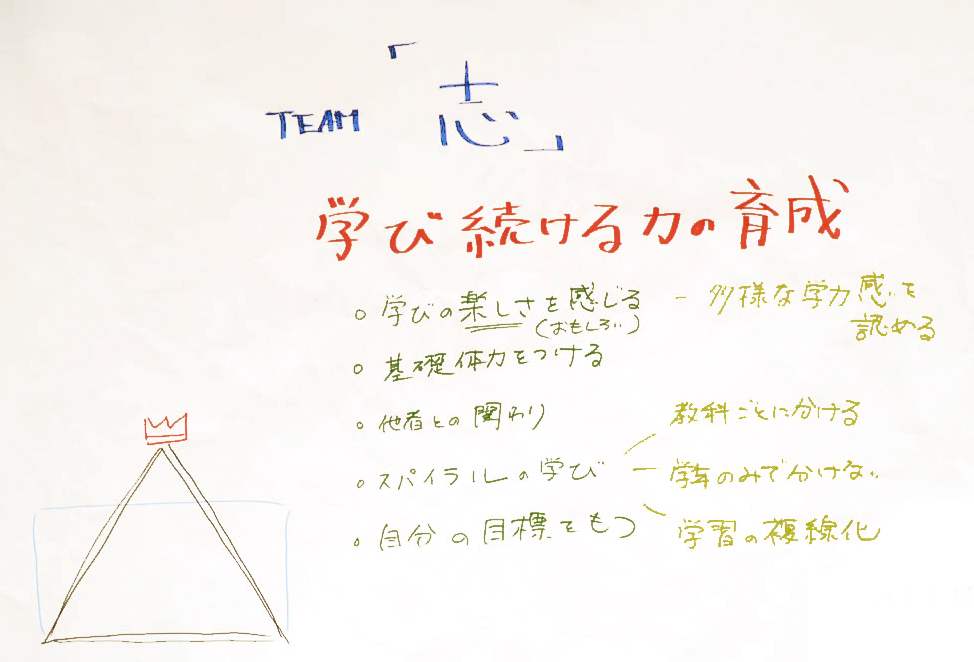 TEAM 「志」
学び続ける力の育成
○ 学びの楽しさを感じる － 多様な学力感を
(おもしろい)
認める
○ 基礎体力をつける
○ 他者との関わり
教科ごとに分ける
○ スパイラルの学び － 学年のみでかけない
○ 自分の目標をもつ
学習の複線化